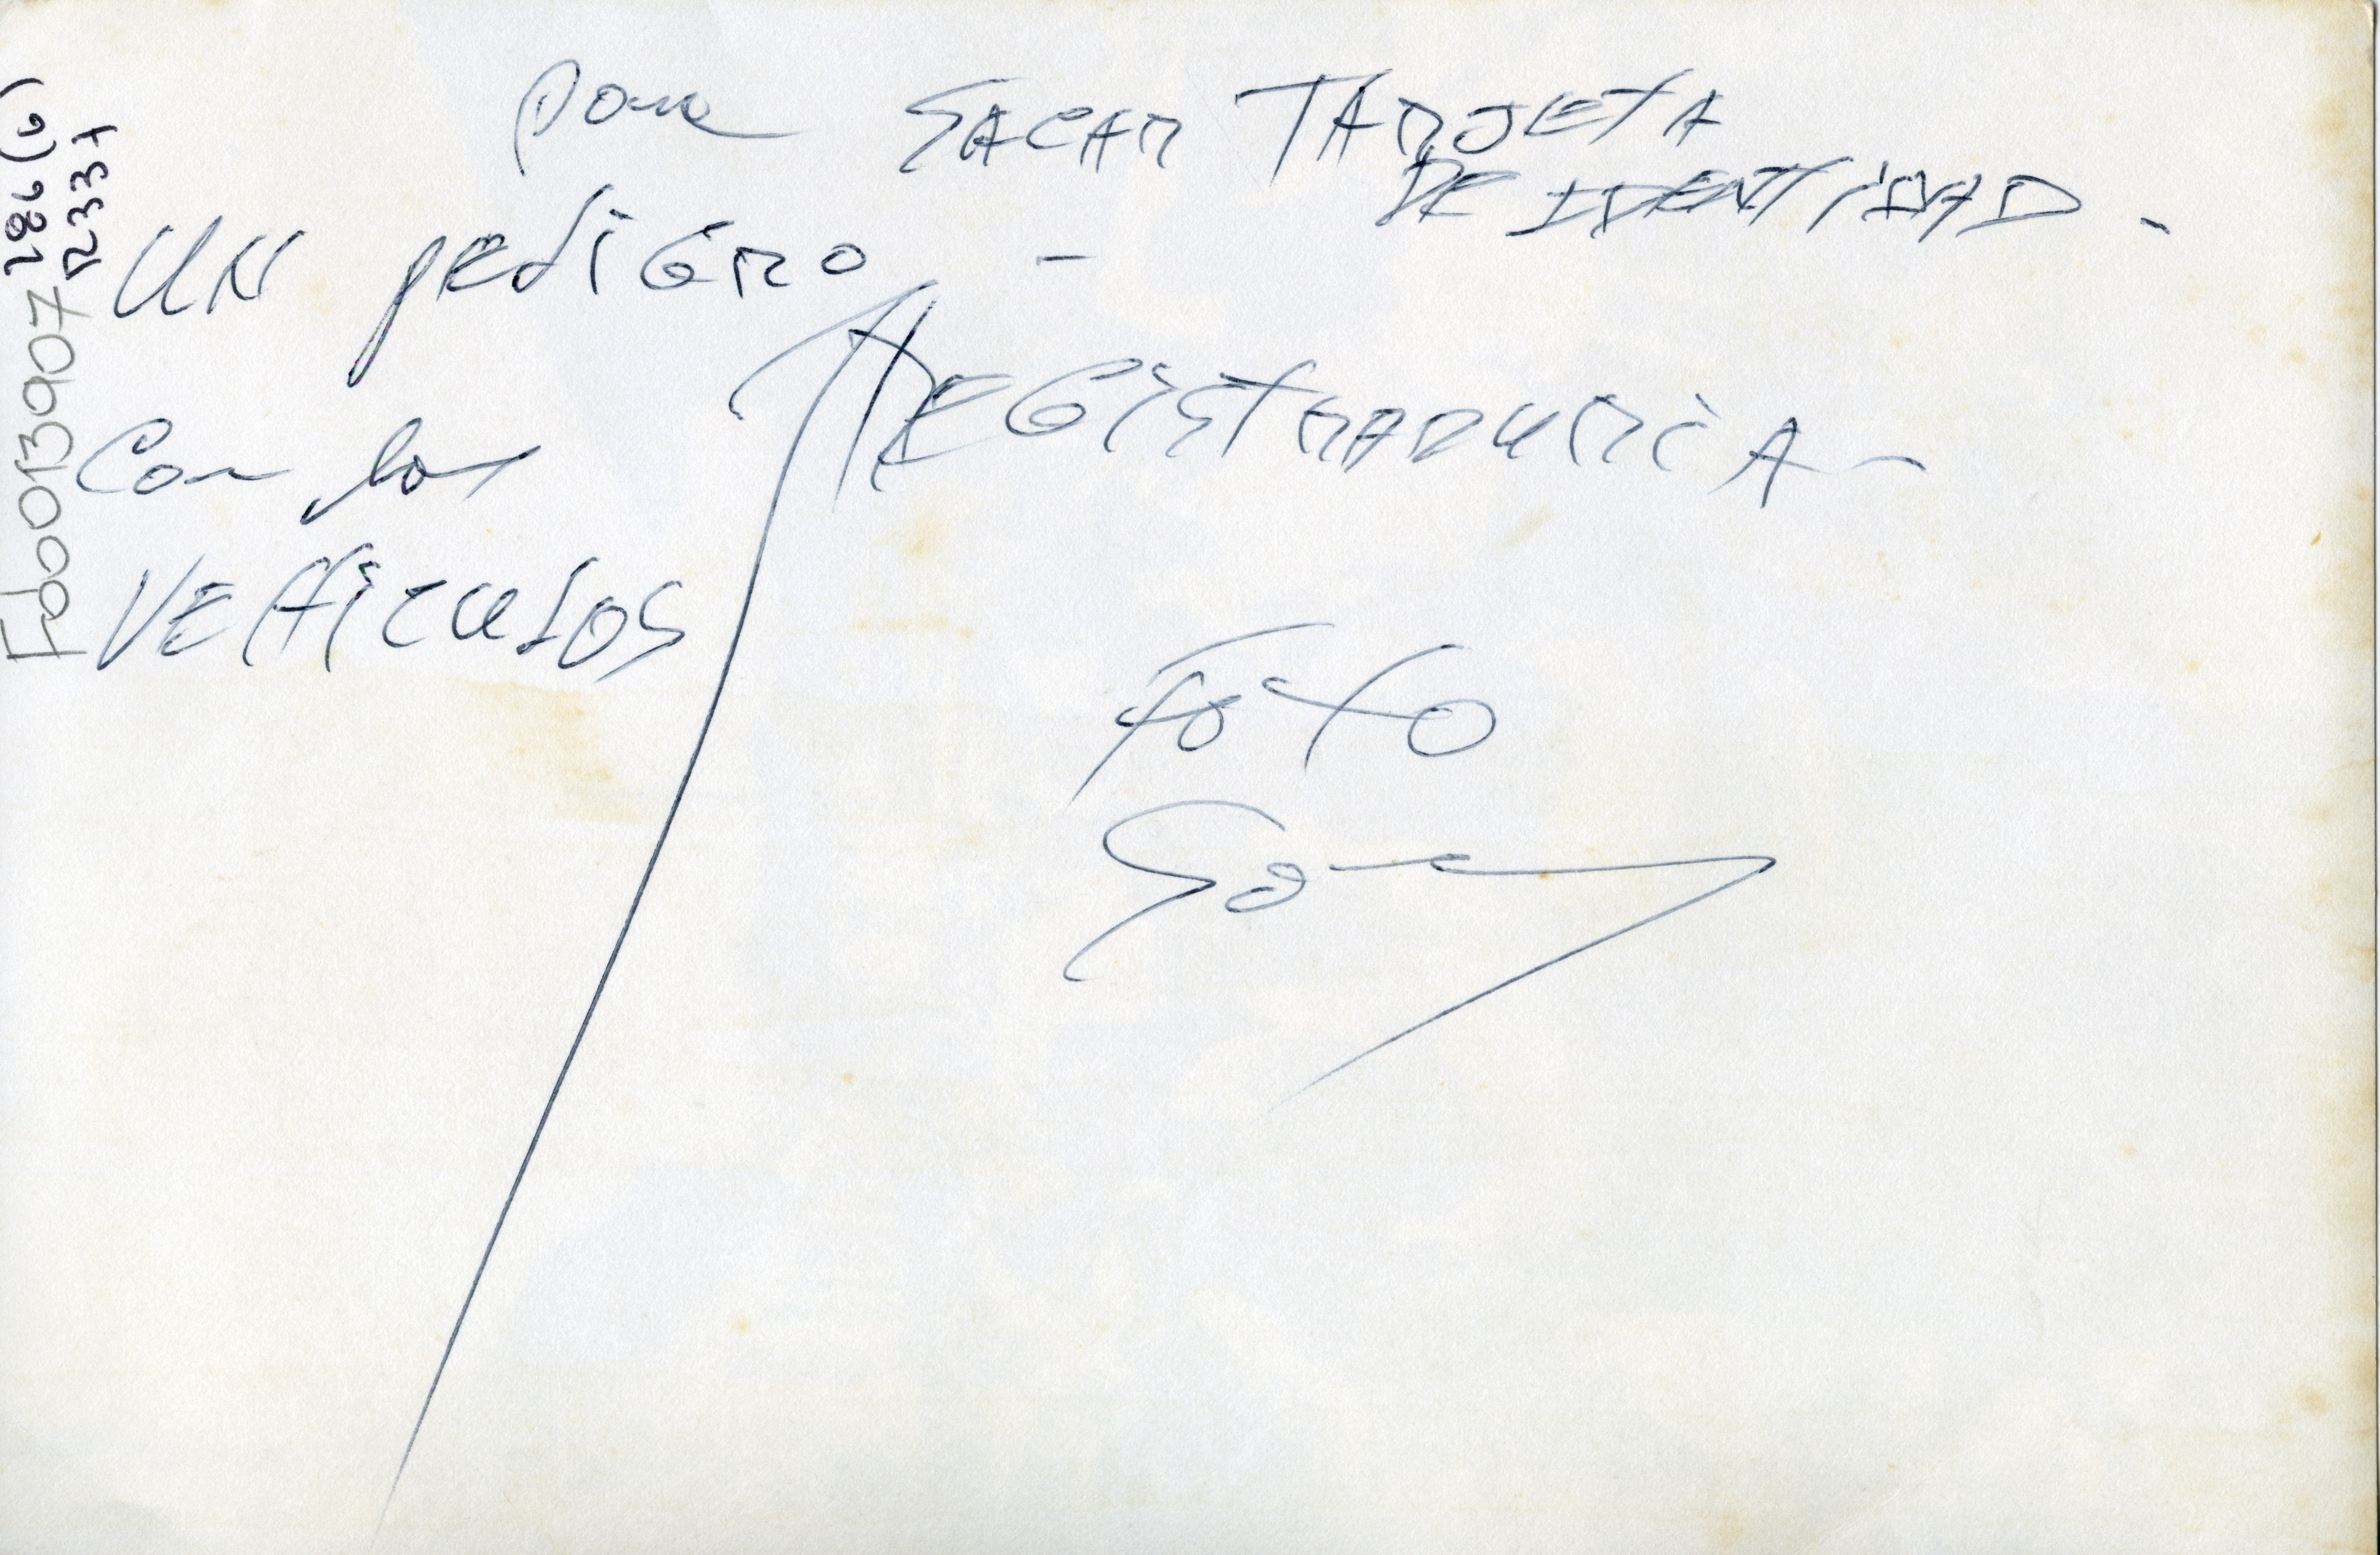 para SACAR TARJETA
DE IDENTIDAD -
UN pEdiGRO -
REGISTRADURIA -
Con los
VEHICULOS
FOTO
286 (6)
R 337
Fdb0013907